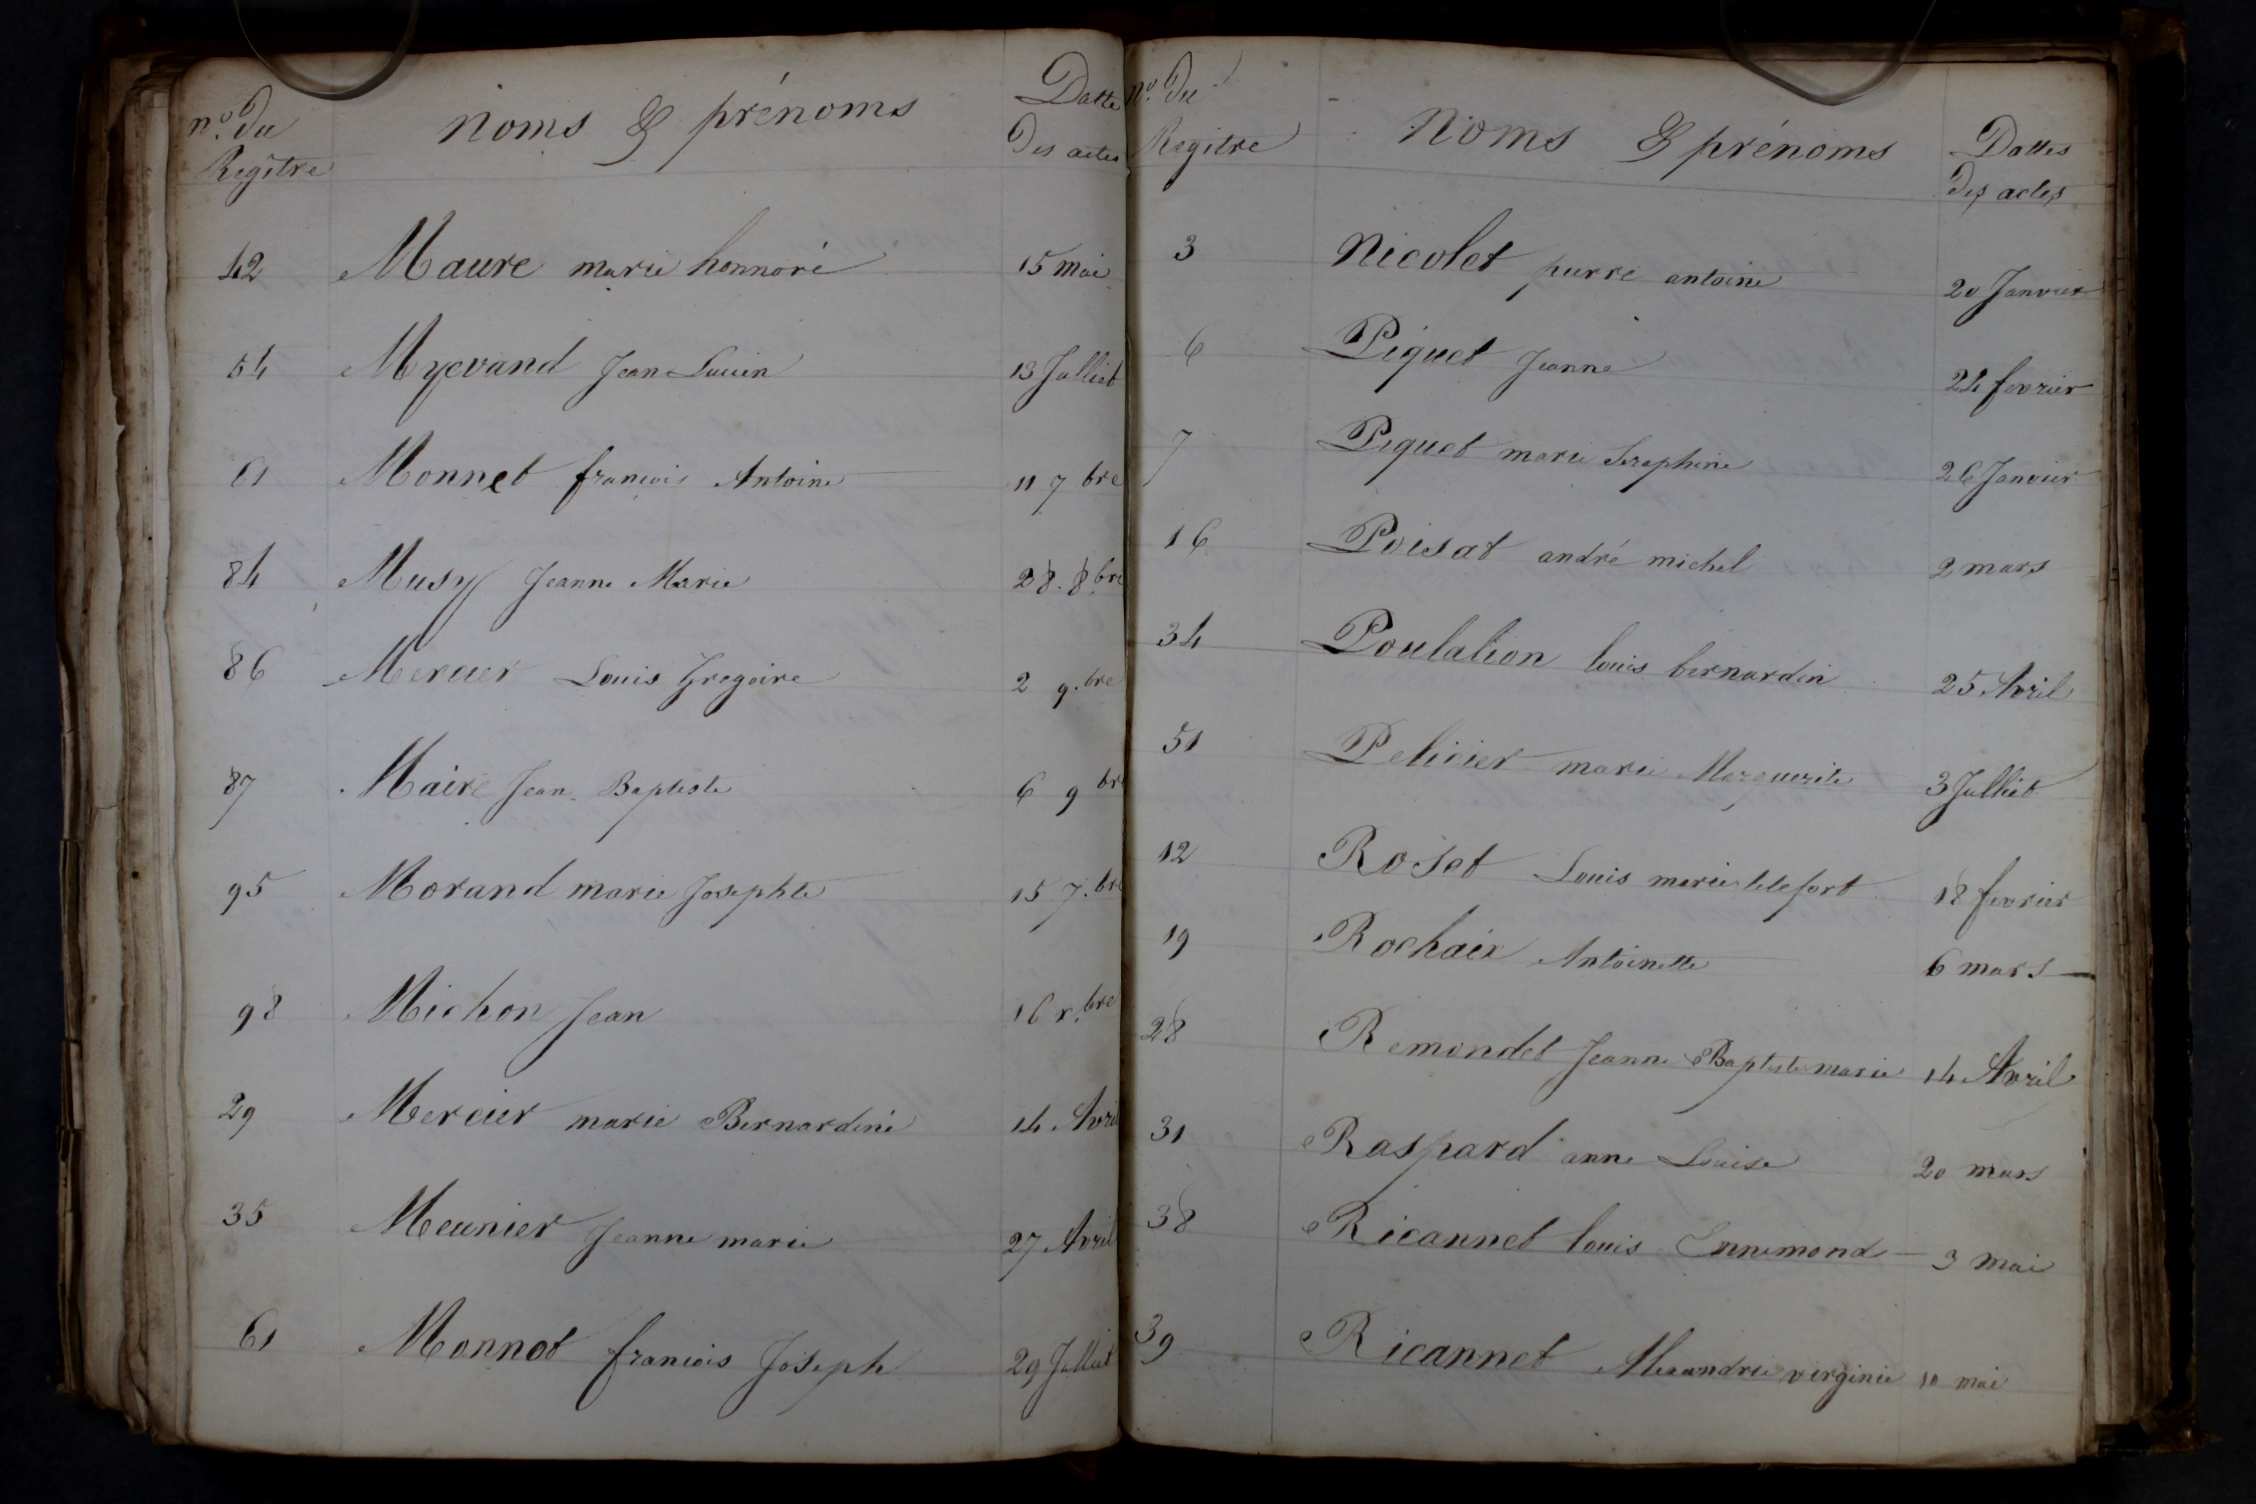 n.o du Registre Noms & prénoms Datte des actes
42 Maure marie honnoré 15 mai
54 Myevand Jean Lucien 13 Julliet
61 Monnet francois Antoine 11 7 bre
84 Musy Jeanne Marie 28. 8.bre
86 Mercier Louis Gregoire 2 9.bre
87 Maire Jean Baptiste 6 9 bre
95 Morand marie Josephte 15 7.bre
98 Michon Jean 16 x.bre
29 Mercier marie Bernardine 14 Avril
35 Meunier Jeanne marie 27 Avril
61 Monnot francois Joseph 29 Julliet
n.o du Regitre Noms & prénoms Dattes des actes
3 Nicolet pierre antoine 20 Janvier
6 Piquet Jeanne 24 fevrier
7 Piquet marie Seraphine 26 Janvier
16 Poisat andré michel 2 mars
34 Poulalion louis bernardin 25 Avril
51 Pelicier marie Marguerite 3 Julliet
12 Roset Louis marie telefort 18 fevrier
19 Rochaix Antoinette 6 mars
28 Remondet Jeanne Baptiste marie 14 Avril
31 Raspard anne Louise 20 mars
38 Ricannet louis Ennemond 3 mai
39 Ricannet Alexandrie virginie 10 mai